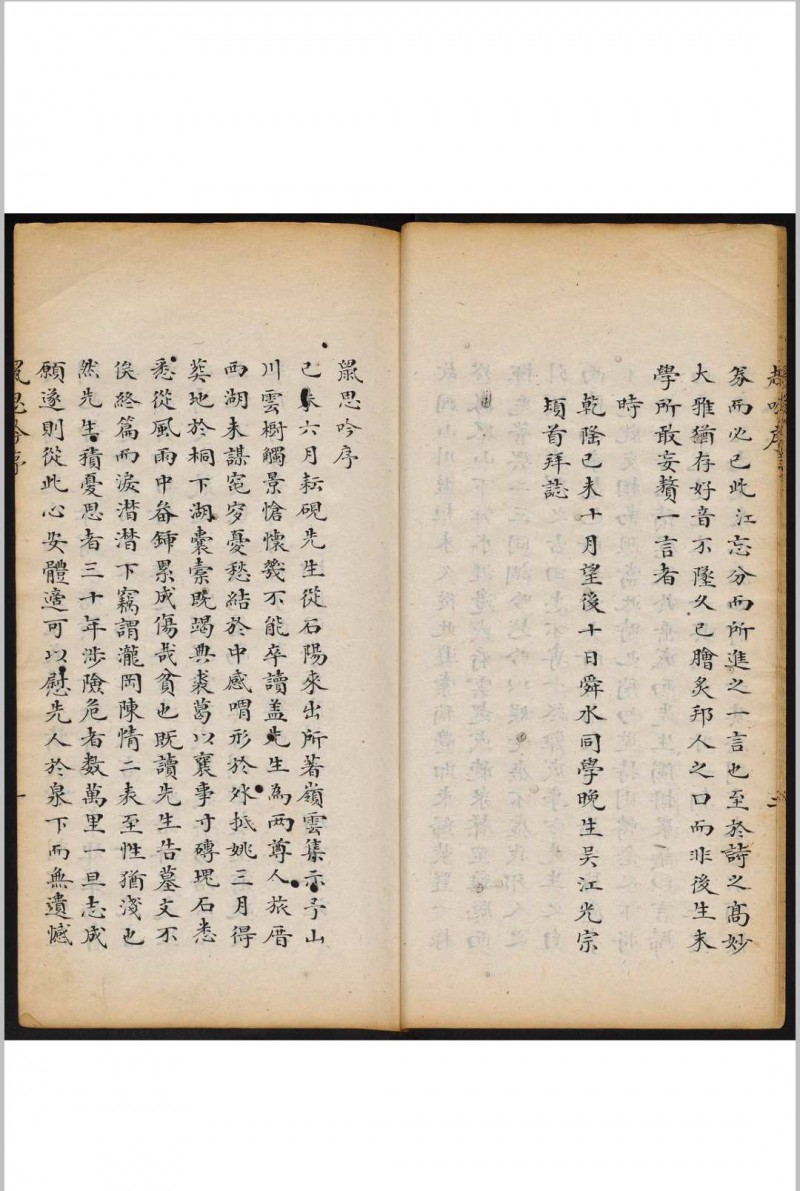 務而必已此江忘分而所進之一言也至於詩之高妙
大雅猶存好音不墜久已膾炙邦人之口而非後生末
學所敢妄贅一言者
時
乾隆己未十月望後十日舜水同學晚生吳江光宗
頊首拜誌
鼠思吟序
己未六月耘硯先生從石陽來出所著嶺雲集示予山
川雲樹觸景愴懷幾不能卒讀盖先生為両尊人旅厝
西湖未謀窀穸憂愁結於中感喟形於外抵姚三月得
葬地於桐下湖囊橐既竭典裘葛以襄事寸磚塊石悉
悉從風雨中畚鍤累成傷哉貧也既讀先生告墓文不
俟終篇而淚潸潸下竊謂瀧岡陳情二表至性猶淺也
然先生積憂思者三十年涉險危者数萬里一旦志成
願遂則從此心安體適可以慰先人於泉下而無遺憾
鼠思吟序
一